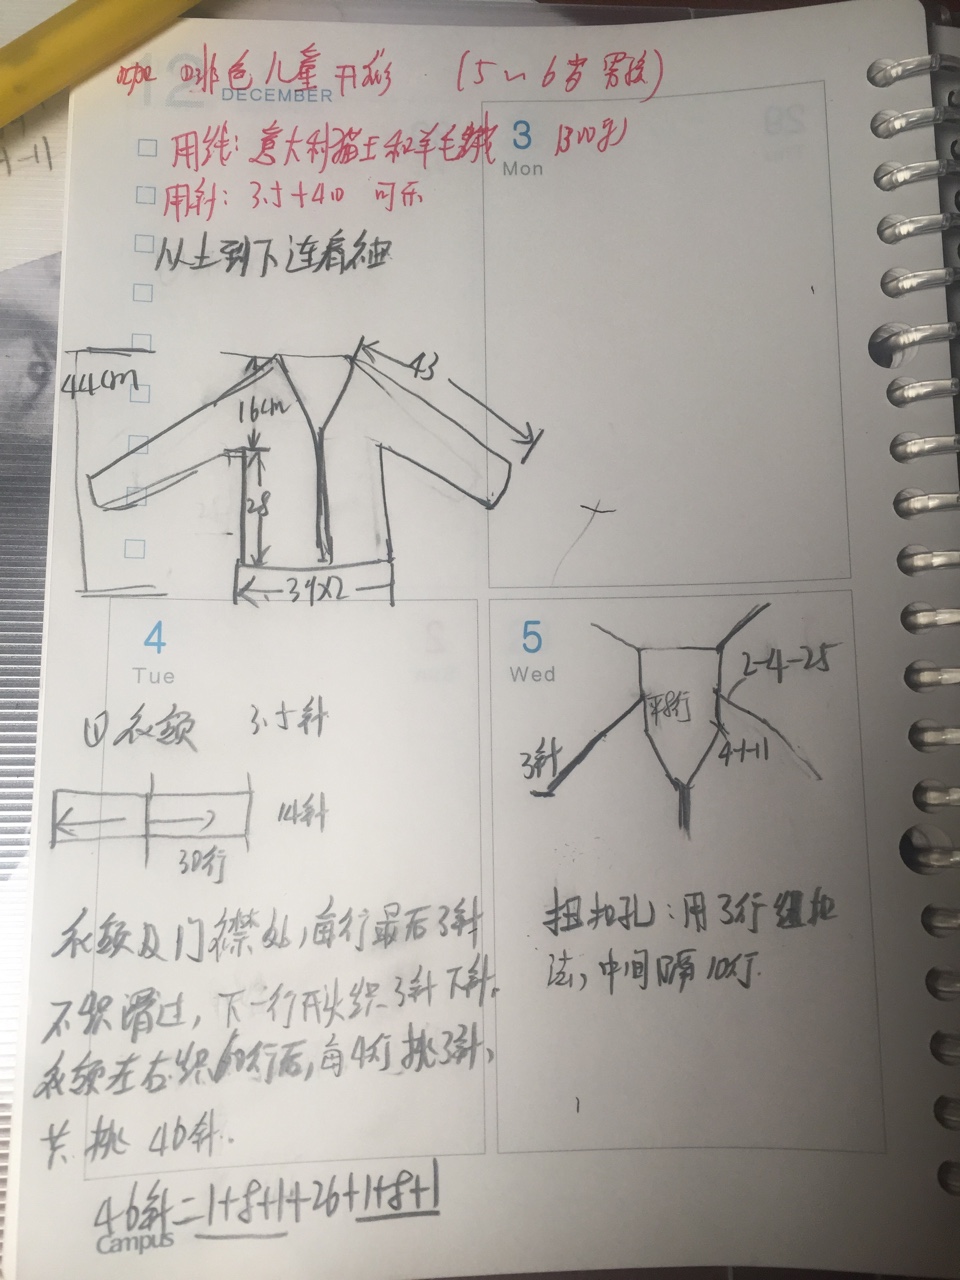 12
DECEMBER
咖啡色儿童开衫 (5~6岁男孩)
用线: 意大利猫王和羊毛绒 1300米
用针: 3.5+4.0 可乐
从上到下连肩袖
3
Mon
44cm
16cm
28
43
34X2
4
Tue
衣领 3.5针
14针
30行
衣领及门襟处,每行最后3针
不织滑过, 下一行开头织3针下针。
衣领左右织60行后, 每4行挑3针,
共挑46针.
46针=1+8+1+26+1+8+1
Campus
5
Wed
2-4-25
平8行
3针
4-1-11
扭扣孔: 用3行纽扣
法, 中间隔10行.